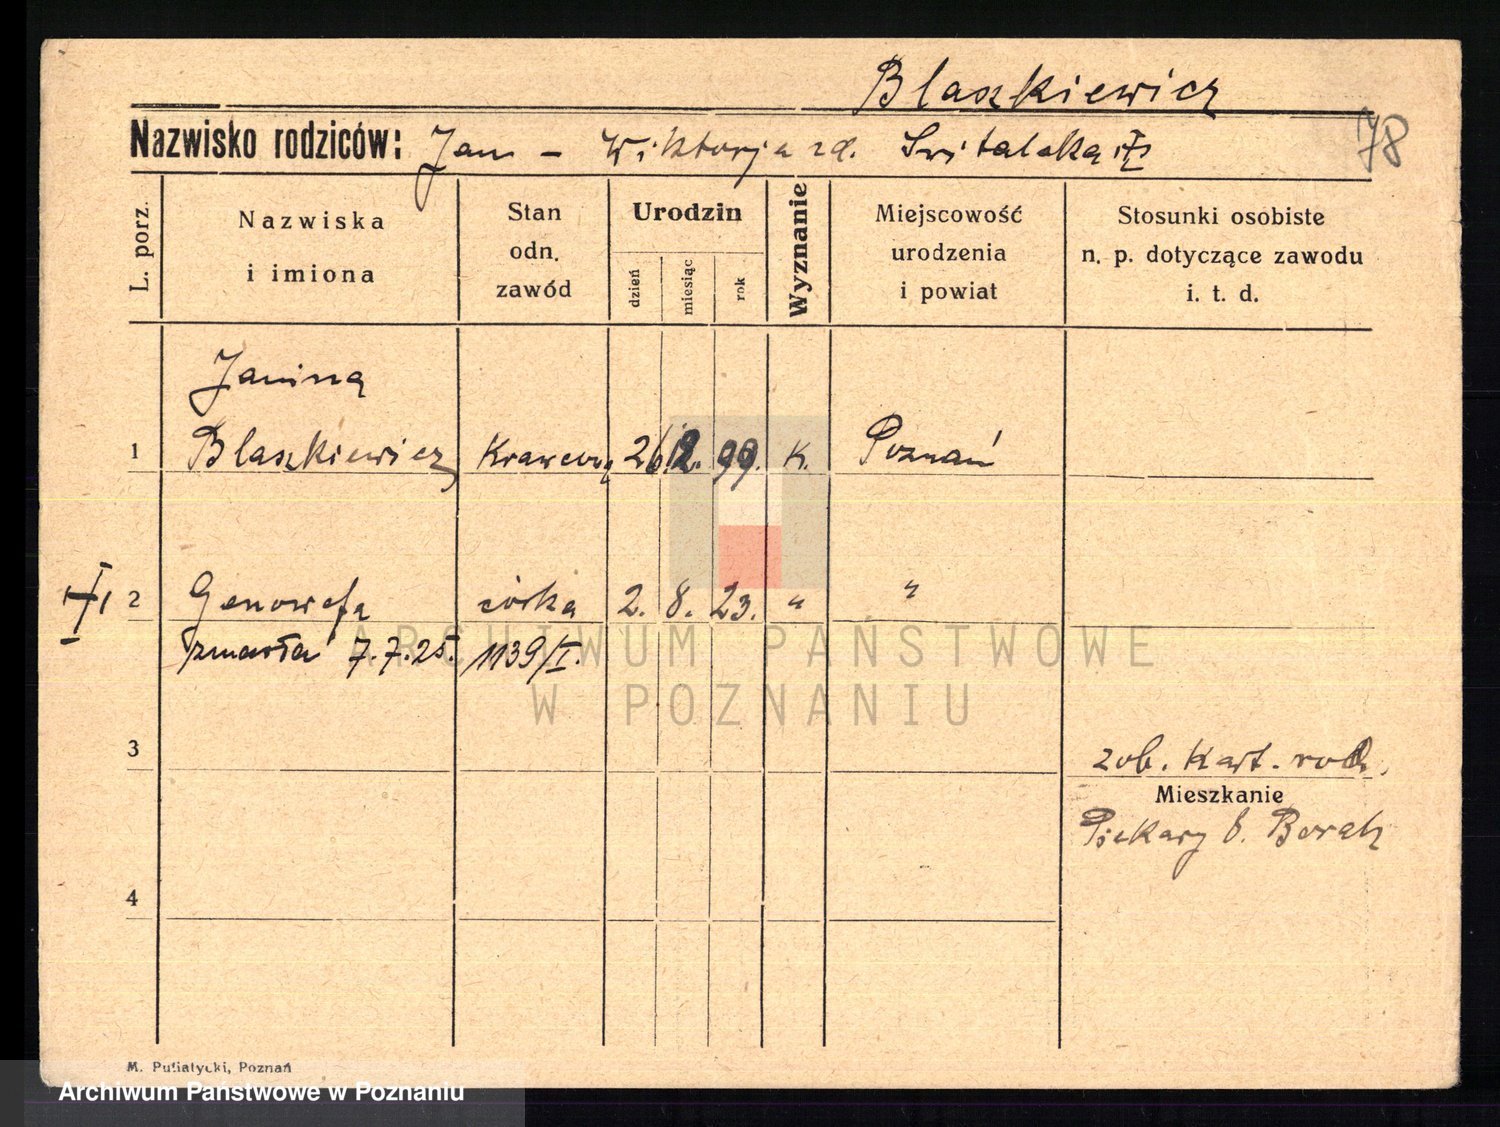 Blaszkiewicz
Nazwisko rodziców: Jan - Wiktorja zd. Świtalska
78
L. porz.
Nazwiska
i imiona
Stan
odn.
zawód
Urodzin
dzień
miesiąc
rok
Wyznanie
Miejscowość
urodzenia
i powiat
Stosunki osobiste
n. p. dotyczące zawodu
i. t. d.
Janina
1 Blaszkiewicz Krawcowa 26. 2. 99. K. Poznań
2 Genowefa córka 2. 8. 23. " "
zmarła 7.7.25. 1139/I.
3
zob. Kart. rodz.
Mieszkanie
Piekary b. Boratz
4
ARCHIWUM PAŃSTWOWE
W POZNANIU
M. Putiatycki, Poznań
Archiwum Państwowe w Poznaniu